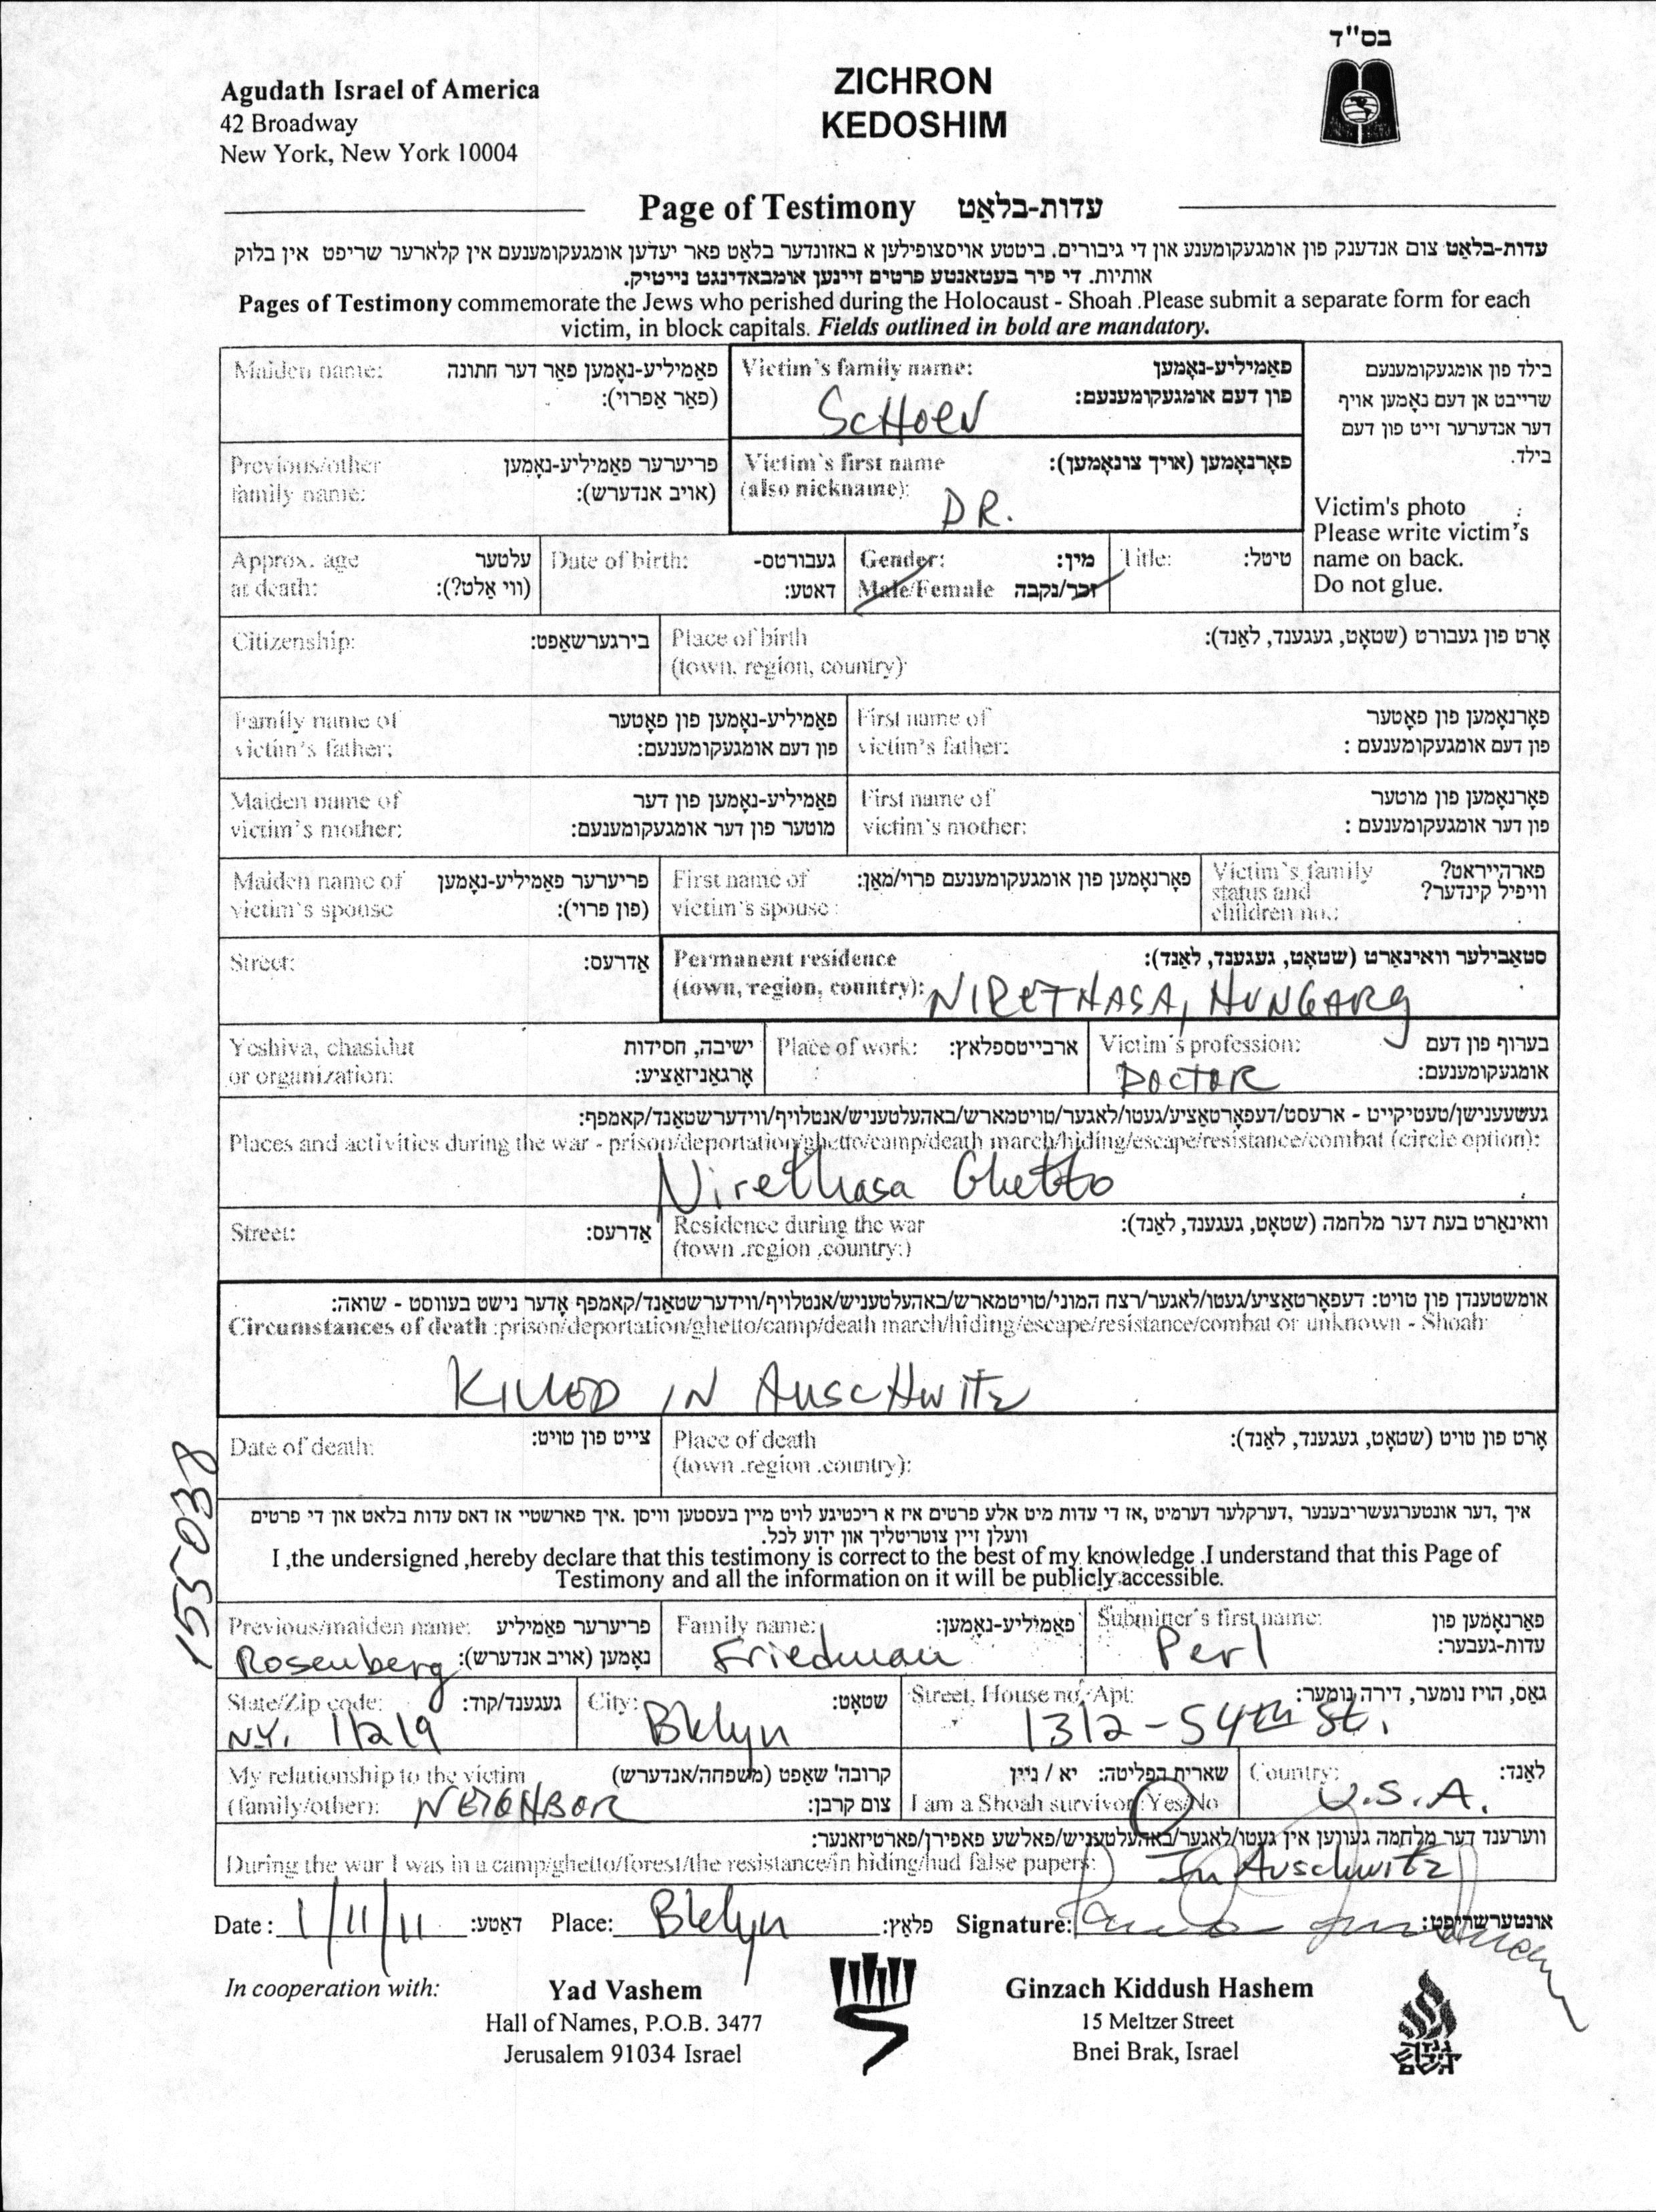 בס"ד
Agudath Israel of America
42 Broadway
New York, New York 10004
ZICHRON
KEDOSHIM
Page of Testimony עדות-בלאַט
עדות-בלאַט צום אנדענק פון אומגעקומענע און די גיבורים. ביטטע אויסצופילען א באזונדער בלאַט פאר יעדען אומגעקומענעם אין קלארער שריפט אין בלוק
אותיות. די פיר בעטאנטע פרטים זיינען אומבאדינגט נייטיק.
Pages of Testimony commemorate the Jews who perished during the Holocaust - Shoah .Please submit a separate form for each
victim, in block capitals. Fields outlined in bold are mandatory.
Maiden name: פאַמיליע-נאָמען פאר דער חתונה
(פאַר אַפרוי):
Victim's family name: פאַמיליע-נאָמען
פון דעם אומגעקומענעם:
SCHOEN
בילד פון אומגעקומענעם
שרייבט אן דעם נאָמען אויף
דער אנדערער זייט פון דעם
בילד.
Victim's photo
Please write victim's
name on back.
Do not glue.
Previous/other פריערער פאַמיליע-נאָמען
family name: (אויב אנדערש):
Victim's first name פאָרנאָמען (אויך צונאָמען):
(also nickname):
DR.
Approx. age עלטער
at death: (ווי אַלט?):
Date of birth: געבורטס-
דאטע:
Gender: מין:
Male/Female זכר/נקבה
Title: טיטל:
Citizenship: בירגערשאַפט:
Place of birth אָרט פון געבורט (שטאָט, געגענד, לאַנד):
(town, region, country):
Family name of פאַמיליע-נאָמען פון פאָטער
victim's father: פון דעם אומגעקומענעם:
First name of פאָרנאָמען פון פאטער
victim's father: פון דעם אומגעקומענעם :
Maiden name of פאַמיליע-נאָמען פון דער
victim's mother: מוטער פון דער אומגעקומענעם:
First name of פאָרנאָמען פון מוטער
victim's mother: פון דער אומגעקומענעם :
Maiden name of פריערער פאַמיליע-נאָמען
victim's spouse (פון פרוי):
First name of פאָרנאָמען פון אומגעקומענעם פרוי/מאַן:
victim's spouse :
Victim's family פארהייראט?
status and וויפיל קינדער?
children no.:
Street: אַדרעס:
Permanent residence סטאַבילער וואינאָרט (שטאָט, געגענד, לאַנד):
(town, region, country): NIRETHASA, HUNGARY
Yeshiva, chasidut ישיבה, חסידות
or organization: אָרגאַניזאַציע:
Place of work: ארבייטספלאץ:
Victim's profession: בערוף פון דעם
DOCTOR אומגעקומענעם:
געשעענישן/טעטיקייט - ארעסט/דעפאָרטאַציע/געטו/לאגער/טויטמארש/באהעלטעניש/אנטלויף/ווידערשטאַנד/קאמפף:
Places and activities during the war - prison/deportation/ghetto/camp/death march/hiding/escape/resistance/combat (circle option):
Nirethasa Ghetto
Street: אַדרעס:
Residence during the war וואינאָרט בעת דער מלחמה (שטאָט, געגענד, לאַנד):
(town .region .country:)
אומשטענדן פון טויט: דעפאָרטאַציע/געטו/לאגער/רצח המוני/טויטמארש/באהעלטעניש/אנטלויף/ווידערשטאַנד/קאמפף אָדער נישט בעווסט - שואה:
Circumstances of death :prison/deportation/ghetto/camp/death march/hiding/escape/resistance/combat or unknown - Shoah:
KILLED IN AUSCHWITZ
Date of death: צייט פון טויט:
Place of death אָרט פון טויט (שטאָט, געגענד, לאַנד):
(town .region .country):
155038
איך ,דער אונטערגעשריבענער ,דערקלער דערמיט ,אז די עדות מיט אלע פרטים איז א ריכטיגע לויט מיין בעסטען וויסן .איך פארשטיי אז דאס עדות בלאט און די פרטים
וועלן זיין צוטריטליך און ידוע לכל.
I ,the undersigned ,hereby declare that this testimony is correct to the best of my knowledge .I understand that this Page of
Testimony and all the information on it will be publicly accessible.
Previous/maiden name: פריערער פאַמיליע
Rosenberg נאָמען (אויב אנדערש):
Family name: פאַמיליע-נאָמען:
Friedman
Submitter's first name: פאָרנאָמען פון
Perl עדות-געבער:
State/Zip code: געגענד/קוד:
N.Y. 11219
City: שטאָט:
Bklyn
Street, House no, Apt: גאַס, הויז נומער, דירה נומער:
1312 - 54th St.
My relationship to the victim קרובה' שאַפט (משפחה/אנדערש)
(family/other): NEIGHBOR צום קרבן:
שארית הפליטה: יא / ניין
I am a Shoah survivor: Yes/No
Country: לאַנד:
U.S.A.
ווערענד דער מלחמה געווען אין געטו/לאגער/באהעלטעניש/פאלשע פאפירן/פארטיזאנער:
During the war I was in a camp/ghetto/forest/the resistance/in hiding/had false papers: In Auschwitz
Date : 1/11/11 דאַטע: Place: Bklyn פלאץ: Signature: אונטערשריפט:
In cooperation with:
Yad Vashem
Hall of Names, P.O.B. 3477
Jerusalem 91034 Israel
Ginzach Kiddush Hashem
15 Meltzer Street
Bnei Brak, Israel
גנזך
קידוש
השם